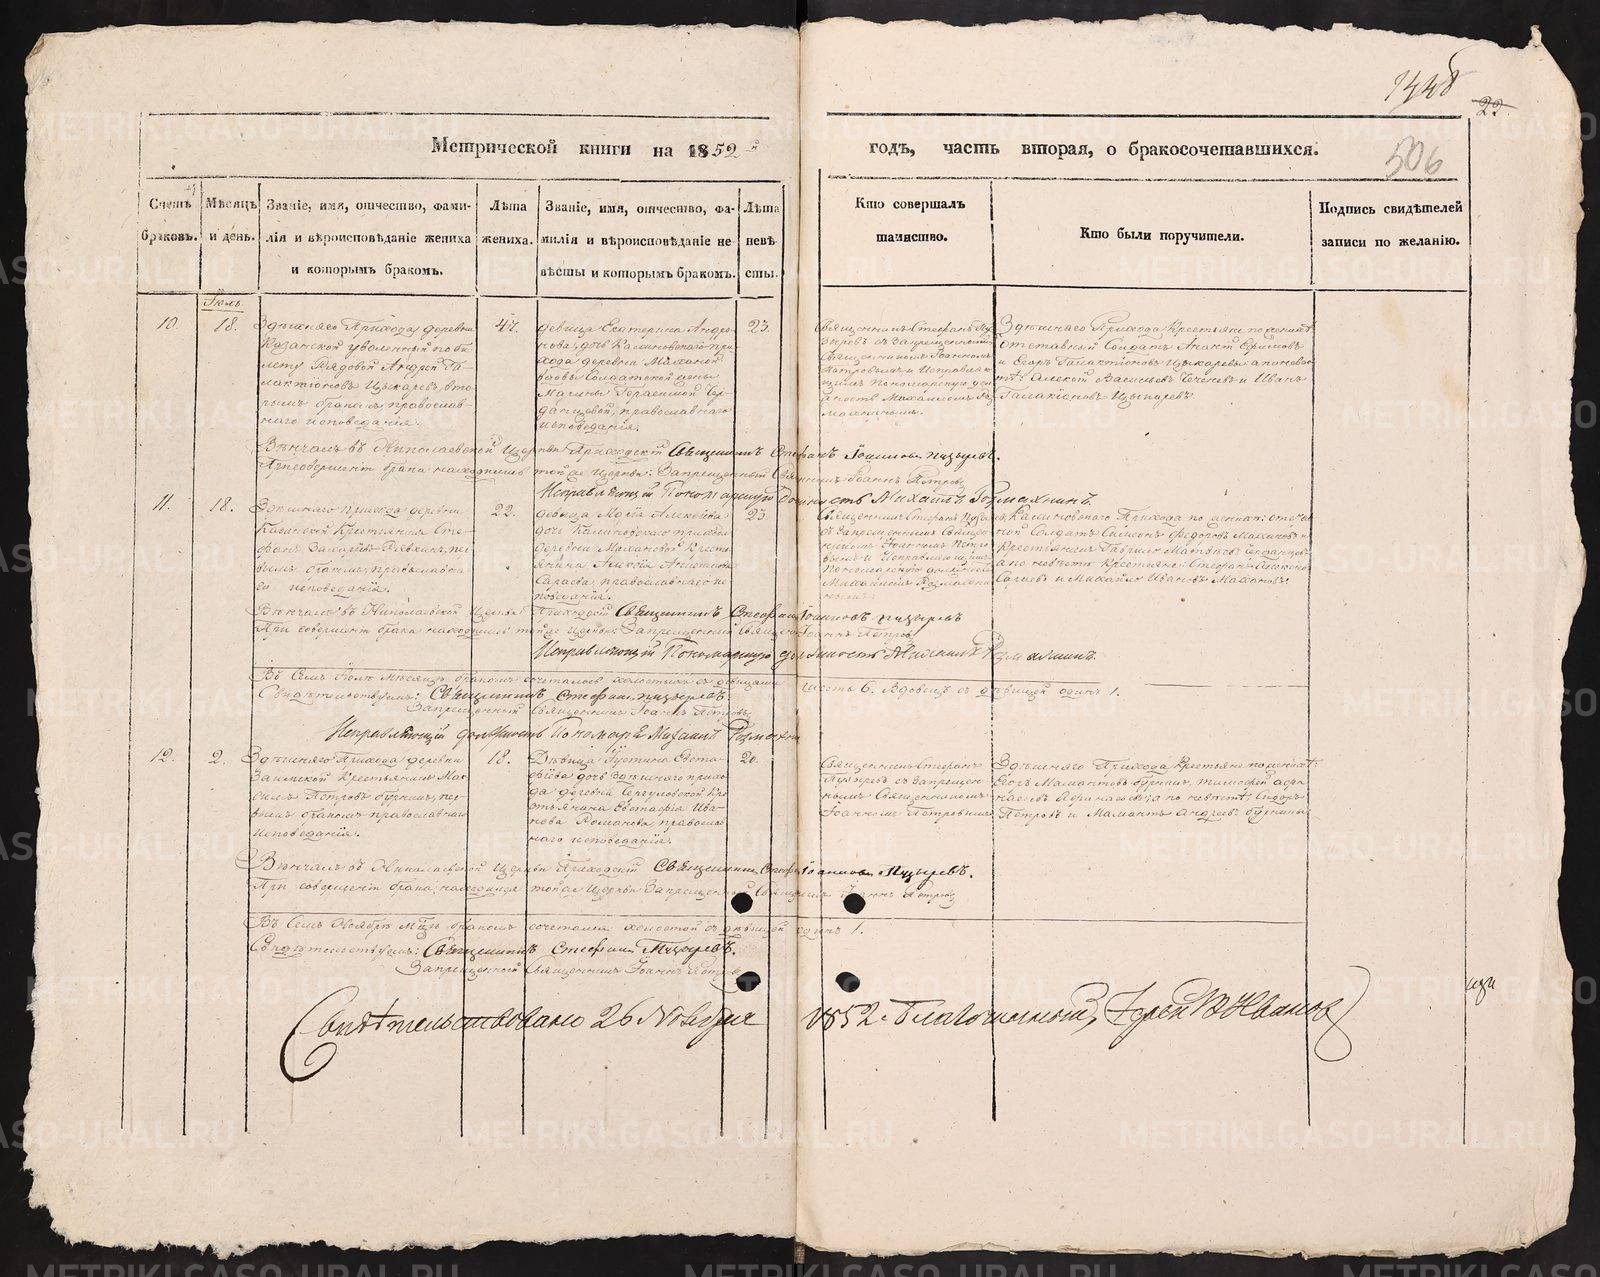 1448
22
506
Метрической книги на 1852й
годъ, часть вторая, о бракосочетавшихся.
Счетъ браковъ.
Мѣсяцъ и день.
Званіе, имя, отчество, фами-
лія и вѣроисповѣданіе жениха
и которымъ бракомъ.
Лѣта жениха.
Званіе, имя, отчество, фа-
милія и вѣроисповѣданіе не-
вѣсты и которымъ бракомъ.
Лѣта невѣ-
сты.
Кто совершалъ
таинство.
Кто были поручители.
Подпись свидѣтелей
записи по желанію.
Іюль.
10.
18.
Здѣшняго Прихода, деревни
Казанской уволенный по би-
лету Рядовой Андрей Га-
лактіоновъ Цыкаревъ, вто-
рымъ бракомъ, православ-
наго исповеданія.
47.
девица Екатерина Андре-
нова, дочь Калиновскаго при-
хода деревни
Солдатской
православнаго
исповеданія.
23.
Священникъ Стефанъ Пу-
зыревъ съ Запрещеннымъ
Священникомъ Іоанномъ
Петровымъ и Исправляю-
щимъ Пономарскую дол-
жность Михаиломъ Раз-
махнинымъ.
Здѣшняго Прихода, Крестьяне по женихѣ:
отставной Солдатъ Ефимовъ
и Егоръ Галактіоновъ Цыкаревъ, а по невес-
тѣ: Алексѣй Васильевъ и Иванъ
Галакіоновъ Цыкаревъ.
Вѣнчалъ въ Николаевской Церкви Приходскій Священникъ Стефанъ Іоанновъ Пузыревъ.
При совершеніи брака находился въ той же Церкви: Запрещенный Священникъ Іоаннъ Петровъ
Исправляющій Пономарскую должность Михаилъ Размахнинъ.
11.
18.
Здѣшняго прихода деревни
Казанской Крестьянинъ Сте-
фанъ Захаровъ пер-
вымъ бракомъ, православна-
го исповеданія.
22.
девица Марія Алексѣева
дочь Калиновскаго прихода
деревни Махановой Кресть-
янина Алексѣя
Сараева, православнаго ис-
поведанія.
23.
Священникъ Стефанъ Пузыревъ
съ Запрещеннымъ Священ-
никомъ Іоанномъ Петро-
вымъ и Исправляющимъ
Пономарскую должность
Михаиломъ Размахни-
нымъ.
Калиновскаго Прихода по женихѣ: отстав-
ной Солдатъ Симеонъ Федоровъ Махановъ и
Крестьянинъ Гавріилъ Матвѣевъ
а по невѣстѣ Крестьяне: Стефанъ Алексѣевъ
Сараевъ и Михайло Ивановъ Махановъ.
Вѣнчалъ въ Николаевской Церкви Приходской Священникъ Стефанъ Іоанновъ Пузыревъ
При совершеніи брака находился въ той же Церкви: Запрещенный Священникъ Іоаннъ Петровъ
Исправляющій Пономарскую должность Михаилъ Размахнинъ.
Въ семъ Іюлѣ Мѣсяцѣ бракомъ сочеталось холостыхъ съ девицами шесть 6. Вдовецъ съ дѣвицей одинъ 1.
Свидѣтельствуемъ: Священникъ Стефанъ Пузыревъ.
Запрещенный Священникъ Іоаннъ Петровъ
Исправляющій должность Пономаря Михаилъ Размахнинъ
12.
2.
Здѣшняго Прихода деревни
Заимской Крестьянинъ Мак-
симъ Петровъ Буркинъ, пер-
вымъ бракомъ православнаго
исповеданія.
18.
Дѣвица Іустина Евста-
фіева дочь Здѣшняго прихо-
да деревни Кре-
стьянина Евстафія Ива-
нова Романова, православ-
наго исповеданія.
20.
Священникъ Стефанъ
Пузыревъ съ Запрещен-
нымъ Священникомъ
Іоанномъ Петровымъ
Здѣшняго Прихода Крестьяне по женихѣ:
Егоръ Мамонтовъ Буркинъ, Тимофей Афа-
насьевъ а по невѣстѣ: Сидоръ
Петровъ и Мамонтъ Андреевъ Буркины
Вѣнчалъ въ Николаевской Церкви Приходскій Священникъ Стефанъ Іоанновъ Пузыревъ.
При совершеніи брака находился въ той же Церкви Запрещенный Священникъ Іоаннъ Петровъ
Въ семъ Ноябрѣ Мцѣ бракомъ сочетался холостой съ дѣвицей одинъ 1.
Свидѣтельствуемъ: Священникъ Стефанъ Пузыревъ.
Запрещенный Священникъ Іоаннъ Петровъ
Свидѣтельствовано 26 Ноября 1852. Благочинный, Іерей В Ивановъ
METRIKI.GASO-URAL.RU